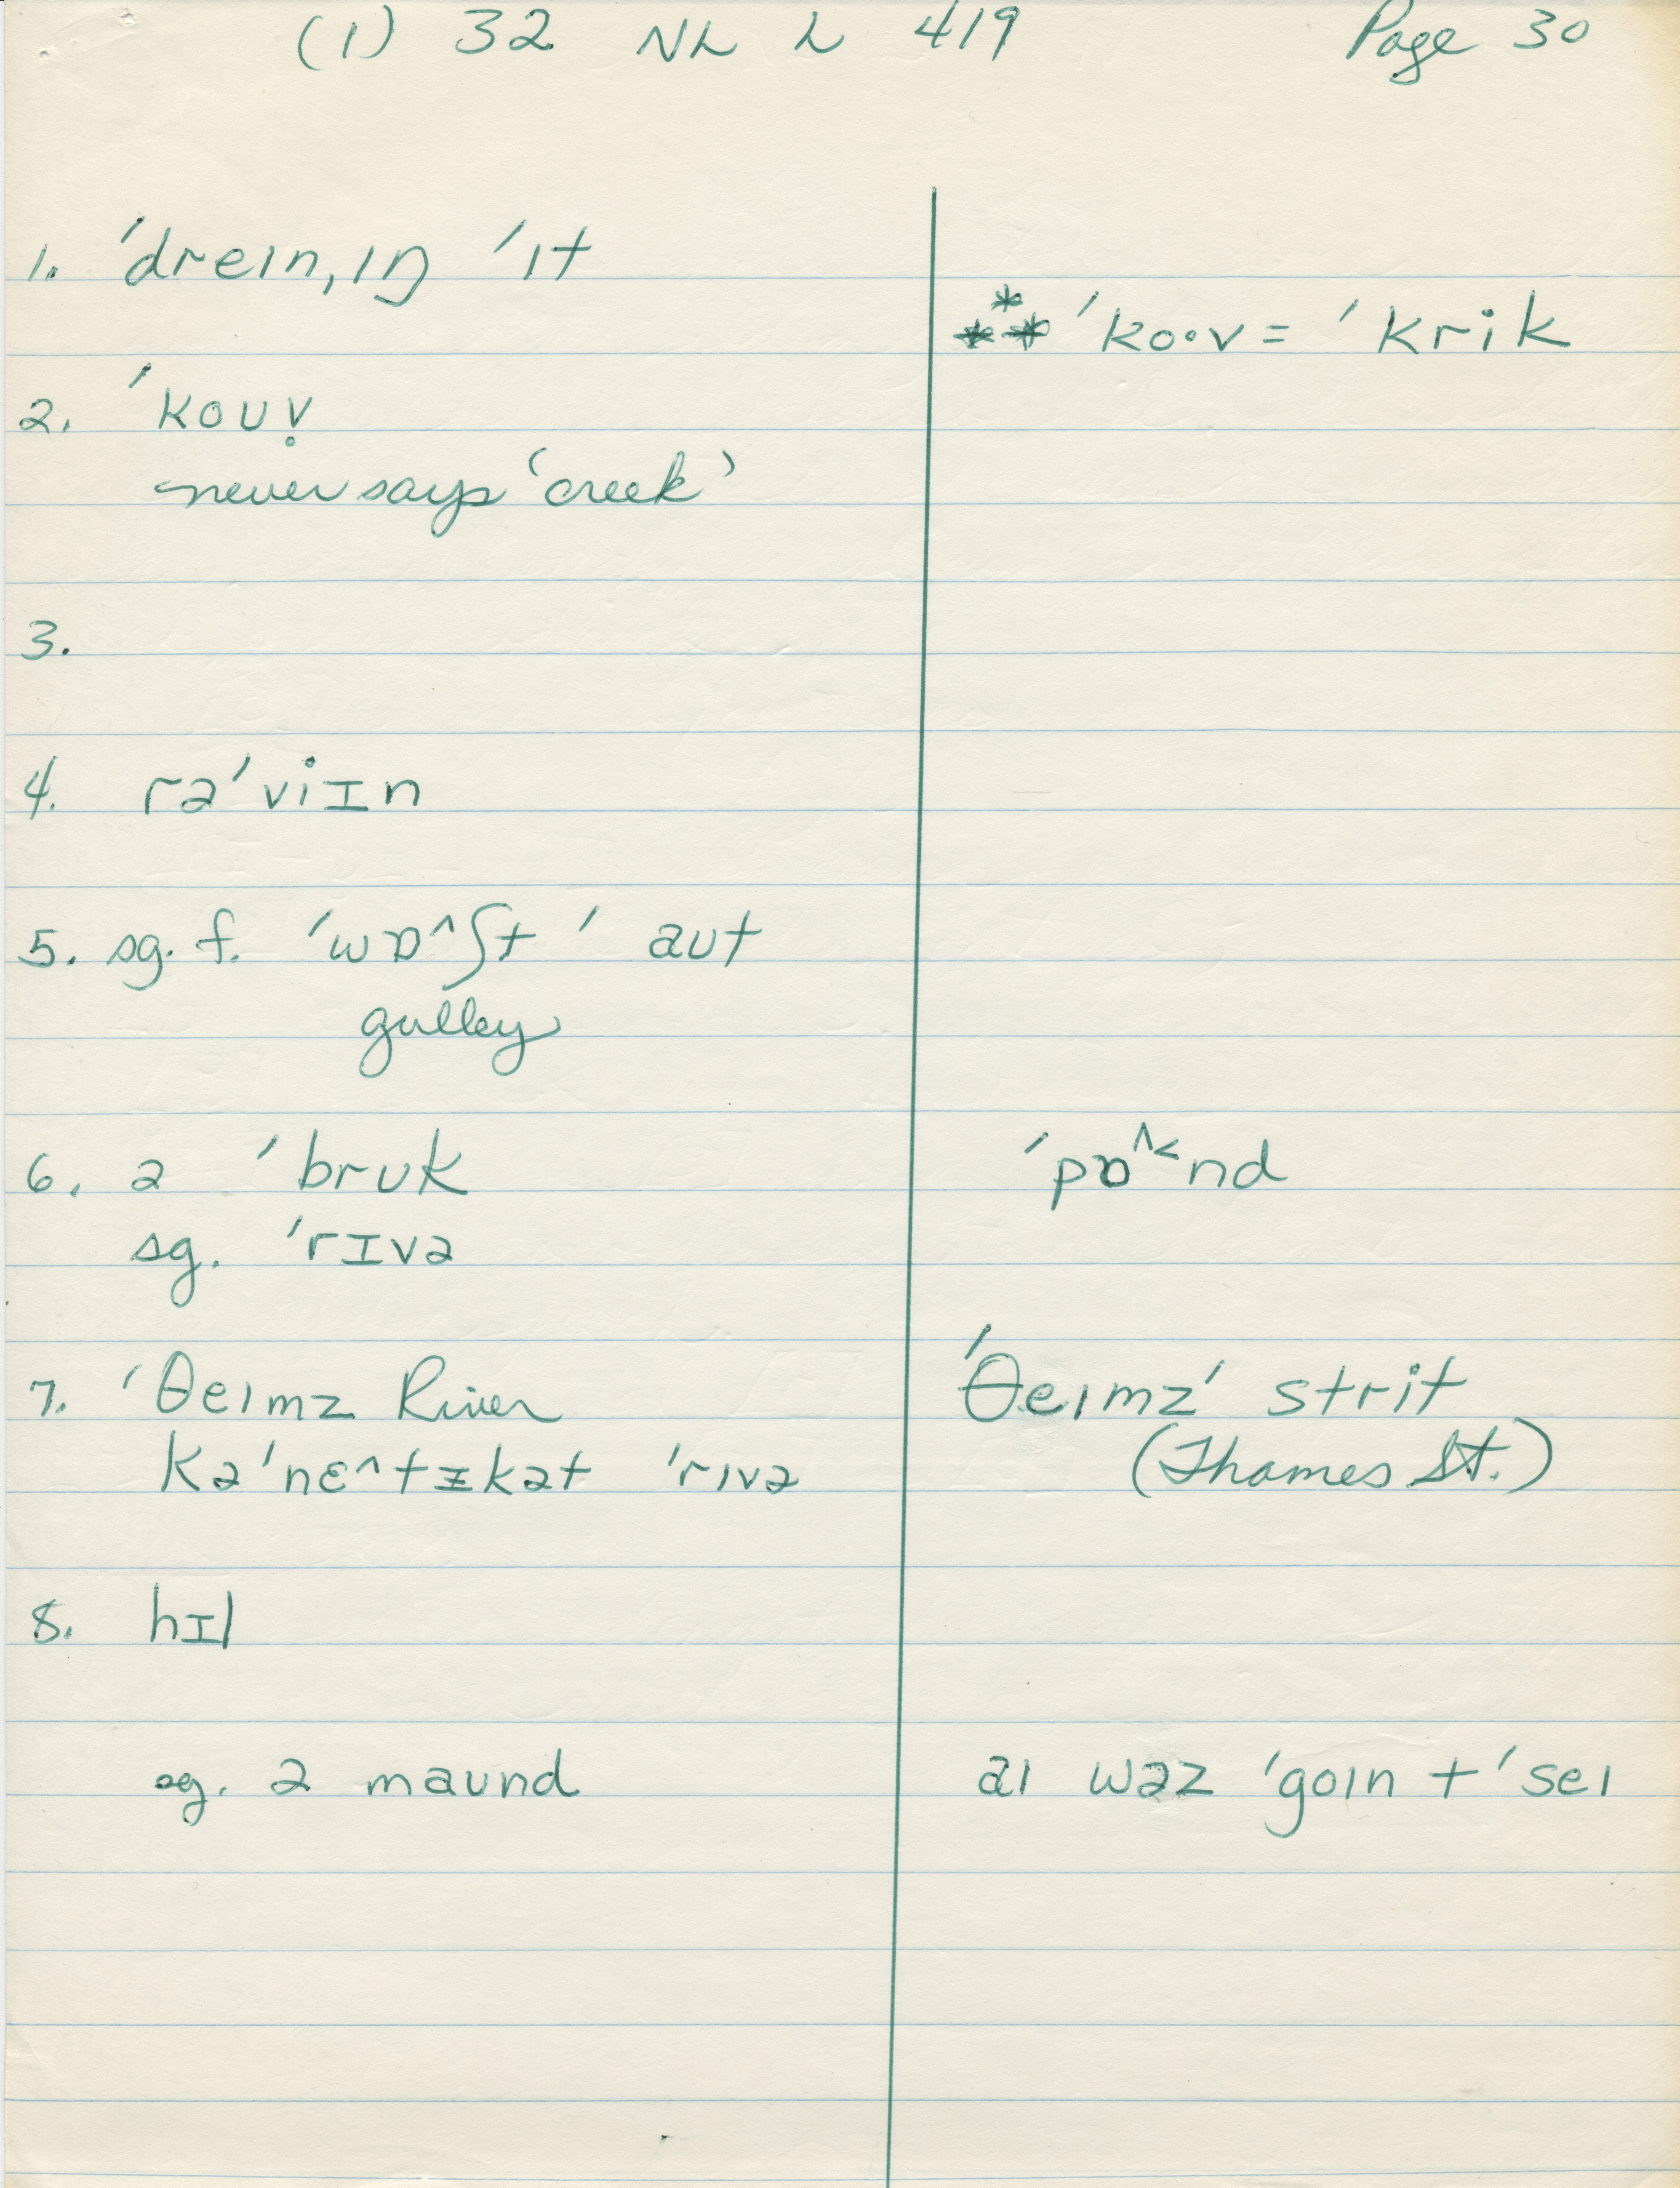 (1) 32 NL L 419 Page 30
1. ˈdreɪnˌɪŋ ˈɪt
*** ˈko·v = ˈkrik
2. ˈkoʊv̥
never says 'creek'
3.
4. rəˈviɪn
5. sg. f. ˈwɒ^ʃt ˈaʊt
gulley
6. ə ˈbrʊk ˈpɒ^<nd
sg. ˈrɪvə
7. ˈθeɪmz River ˈθeɪmz ˈstrit
kəˈnɛ^tɪkət ˈrɪvə (Thames St.)
8. hɪl
sg. ə maʊnd aɪ wəz ˈgoɪn tˈseɪ